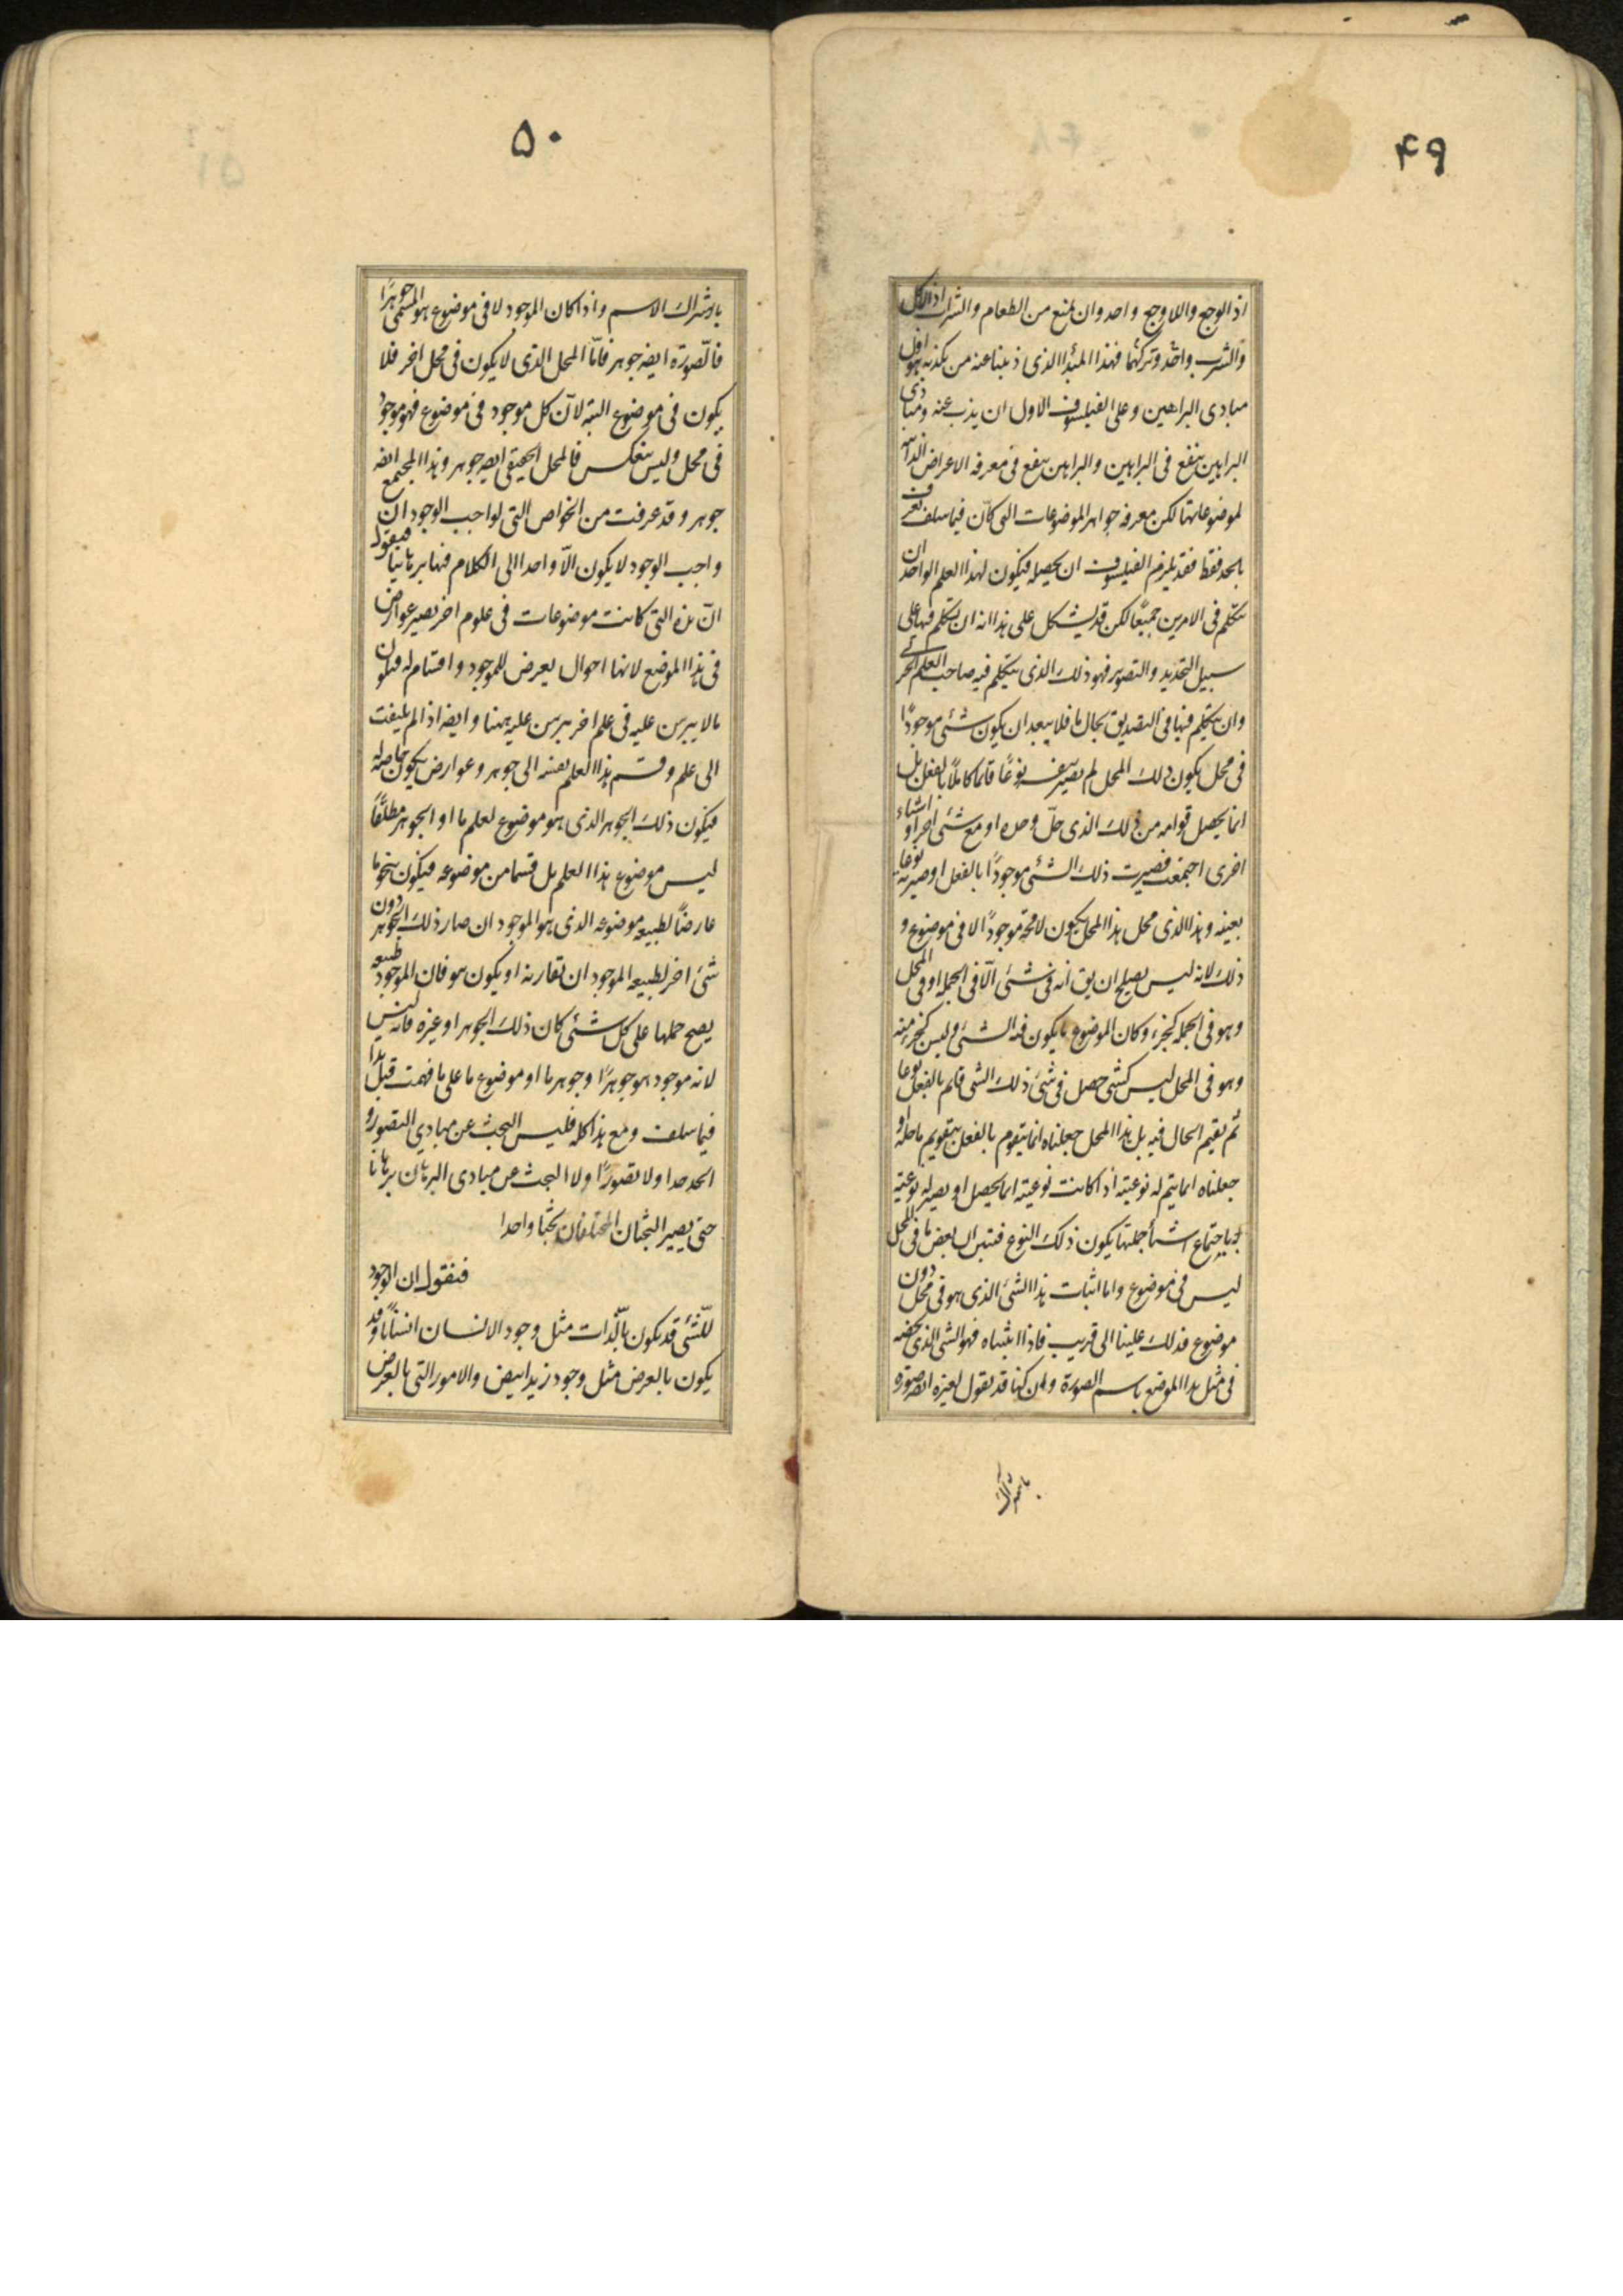 ۴۹
اذ الوجع واللاوجع واحد وان يمنع من الطعام والشراب اذ الاكل
والشرب واحد وتركهما فهذا المبدأ الذى ذببنا عنه من يكذبه هو اول
مبادى البراهين وعلى الفيلسوف الاول ان يذب عنه ومبادى
البراهين ينفع فى البراهين والبراهين ينفع فى معرفه الاعراض الذاتيه
لموضوعاتها لكن معرفه جواهر الموضوعات التى كان فيما سلف تعرف
بالحد فقط فقد يلزم الفيلسوف ان يحصله فيكون لهذا العلم الواحد ان
يتكلم فى الامرين جميعًا لكن قد يشكل على هذا انه ان يتكلم فيها على
سبيل التحديد والتصور فهو ذلك الذى يتكلم فيه صاحب العلم الجزئى
وان يتكلم فيها فى التصديق بحال ما فلا يبعد ان يكون شئى موجودًا
فى محل يكون ذلك المحل لم يصير بنفسه نوعًا قائما كاملًا بالفعل بل
انما يحصل قوامه من ذلك الذى حلّ وحده او مع شئى اخر او اشياء
اخرى اجتمعت فصيرت ذلك الشئى موجودًا بالفعل او صيرته نوعا
بعينه وهذا الذى محل هذا المحل يكون لا محة موجودًا الا فى موضوع و
ذلك لانه ليس يصلح ان يق انه فى شئى الّا فى الجمله او فى المحل
وهو فى الجمله كجزء وكان الموضوع ما يكون فيه الشئى وليس كجزء منه
وهو فى المحل ليس كشئى حصل فى شئى ذلك الشى قائم بالفعل نوعا
ثم يقيم الحال فيه بل هذا المحل جعلناه انما يتقوم بالفعل بتقويم ما حله او
جعلناه انما يتم له نوعيته اذا كانت نوعيته انما يحصل او يصير له نوعيته
باجتماع اشيأ جملتها يكون ذلك النوع فتبين ان بعض ما فى المحل
ليس فى موضوع واما اثبات هذا الشئى الذى هو فى محل دون
موضوع فذلك علينا الى قريب فاذا اثبتناه فهو الشى الذى يخصه
فى مثل هذا الموضع باسم الصورة وان كنا قد نقول لغيره ايضه صورة
باشتراك
۵۰
باشتراك الاسم واذا كان الموجود لا فى موضوع هو المسمى جوهرًا
فالصّورة ايضه جوهر فامّا المحل الذى لا يكون فى محل اخر فلا
يكون فى موضوع البتة لانّ كل موجود فى موضوع فهو موجود
فى محل وليس ينعكس فالمحل الحقيقى ايضه جوهر وهذا المجتمع ايضه
جوهر وقد عرفت من الخواص التى لواجب الوجود ان
واجب الوجود لا يكون الّا واحدا الى الكلام فنقول
الآن هذه التى كانت موضوعات فى علوم اخر يصير عوارض
فى هذا الموضع لانها احوال يعرض للموجود واقسام له فيكون
ما لا يبرهن عليه فى علم اخر يبرهن عليه ههنا وايضه اذا لم يلتفت
الى علم وقسم هذا العلم بعينه الى جوهر وعوارض يكون خاصه له
فيكون ذلك الجوهر الذى هو موضوع لعلم ما او الجوهر مطلقًا
ليس موضوع هذا العلم بل قسما من موضوعه فيكون بنحو ما
عارضًا لطبيعه موضوعه الذى هو الموجود ان صار ذلك الجوهر دون
شئ اخر لطبيعه الموجود ان تقارنه او يكون هو فان الموجود طبيعه
يصح حملها على كل شئى كان ذلك الجوهر او غيره فانه ليس
لانه موجود هو جوهرًا وجوهر ما او موضوع ما على ما فهمت قبل هذا
فيما سلف ومع هذا كله فليس البحث عن مبادى التصور و
الحد حدا ولا تصورًا ولا البحث عن مبادى البرهان برهانا
حتى يصير البحثان المختلفان بحثا واحدا
فنقول ان الوجود
للشئى قد يكون بالذات مثل وجود الانسان انسانًا وقد
يكون بالعرض مثل وجود زيد ابيض والامور التى بالعرض